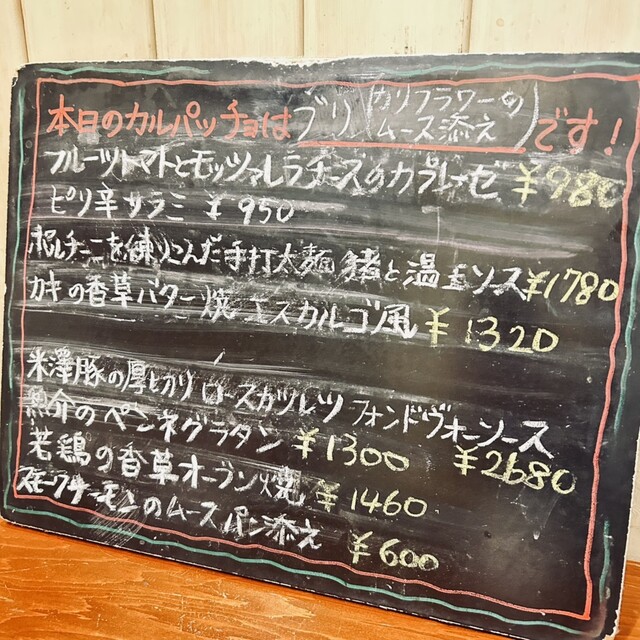 本日のカルパッチョは ブリ (カリフラワーの ムース添え) です！
フルーツトマトとモッツァレラチーズのカプレーゼ ¥980
ピリ辛サラミ ¥950
ポルチーニを練りこんだ手打太麺 猪と温玉ソース ¥1780
カキの香草バター焼 エスカルゴ風 ¥1320
米澤豚の厚とカツ ロースカツレツ フォンドヴォーソース ¥2680
魚介のペンネグラタン ¥1300
若鶏の香草オーブン焼 ¥1460
スモークサーモンのムース パン添え ¥600